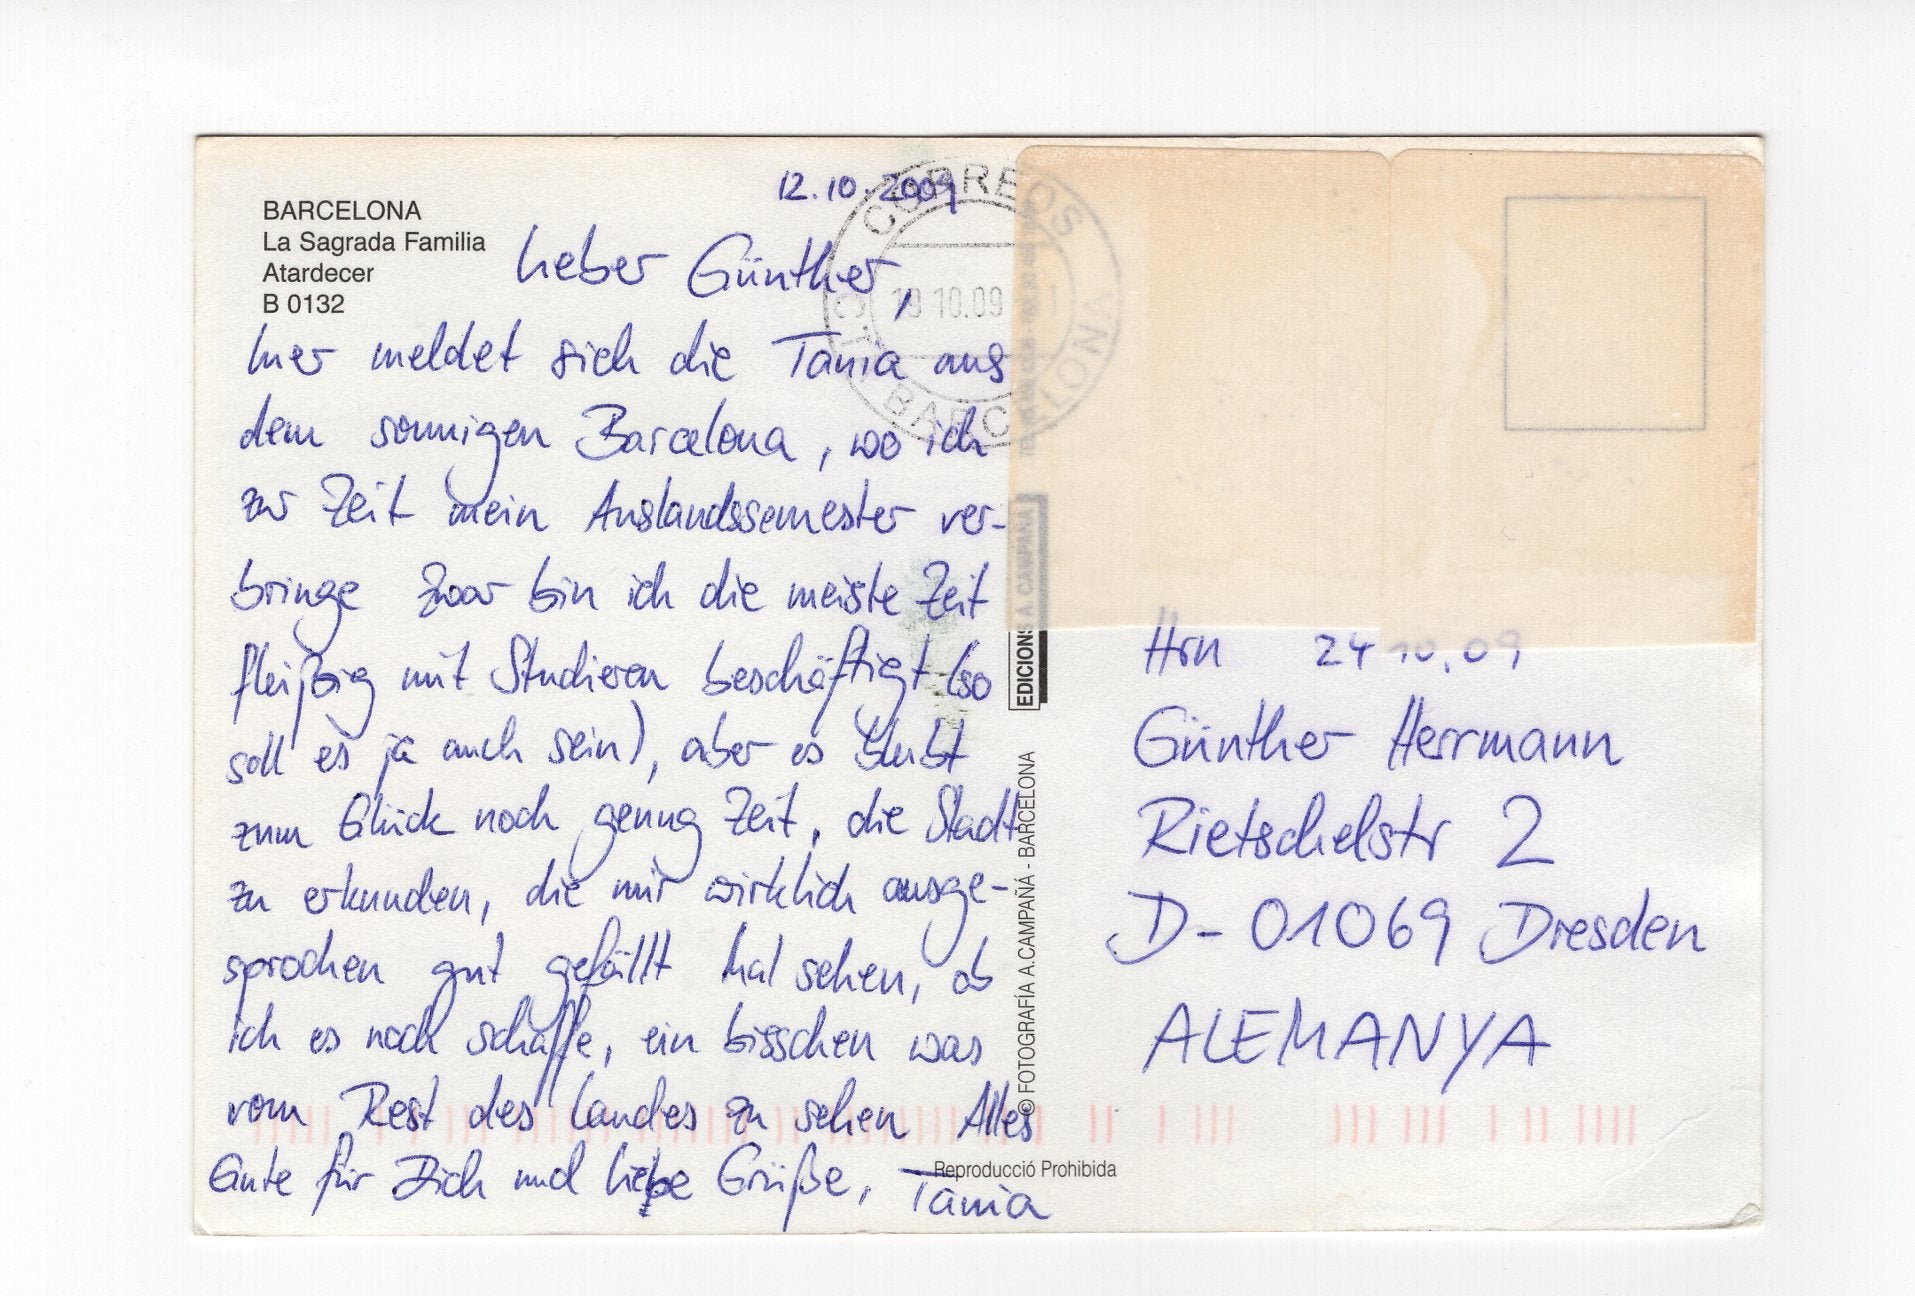 BARCELONA
La Sagrada Familia
Atardecer
B 0132
12.10.2009
CORREOS
19 10.09
BARCELONA
Lieber Günther,
hier meldet sich die Tania aus
dem sonnigen Barcelona, wo ich
zur Zeit mein Auslandssemester ver-
bringe Zwar bin ich die meiste Zeit
fleißig mit Studieren beschäftigt (so
soll es ja auch sein), aber es bleibt
zum Glück noch genug Zeit, die Stadt
zu erkunden, die mir wirklich ausge-
sprochen gut gefällt Mal sehen, ob
ich es noch schaffe, ein bisschen was
vom Rest des Landes zu sehen Alles
Gute für Dich und liebe Grüße, Tania
EDICIONS A. CAMPAÑÁ
© FOTOGRAFÍA A.CAMPAÑÁ - BARCELONA
Reproducció Prohibida
Hrn 24 10.09
Günther Herrmann
Rietschelstr 2
D-01069 Dresden
ALEMANYA